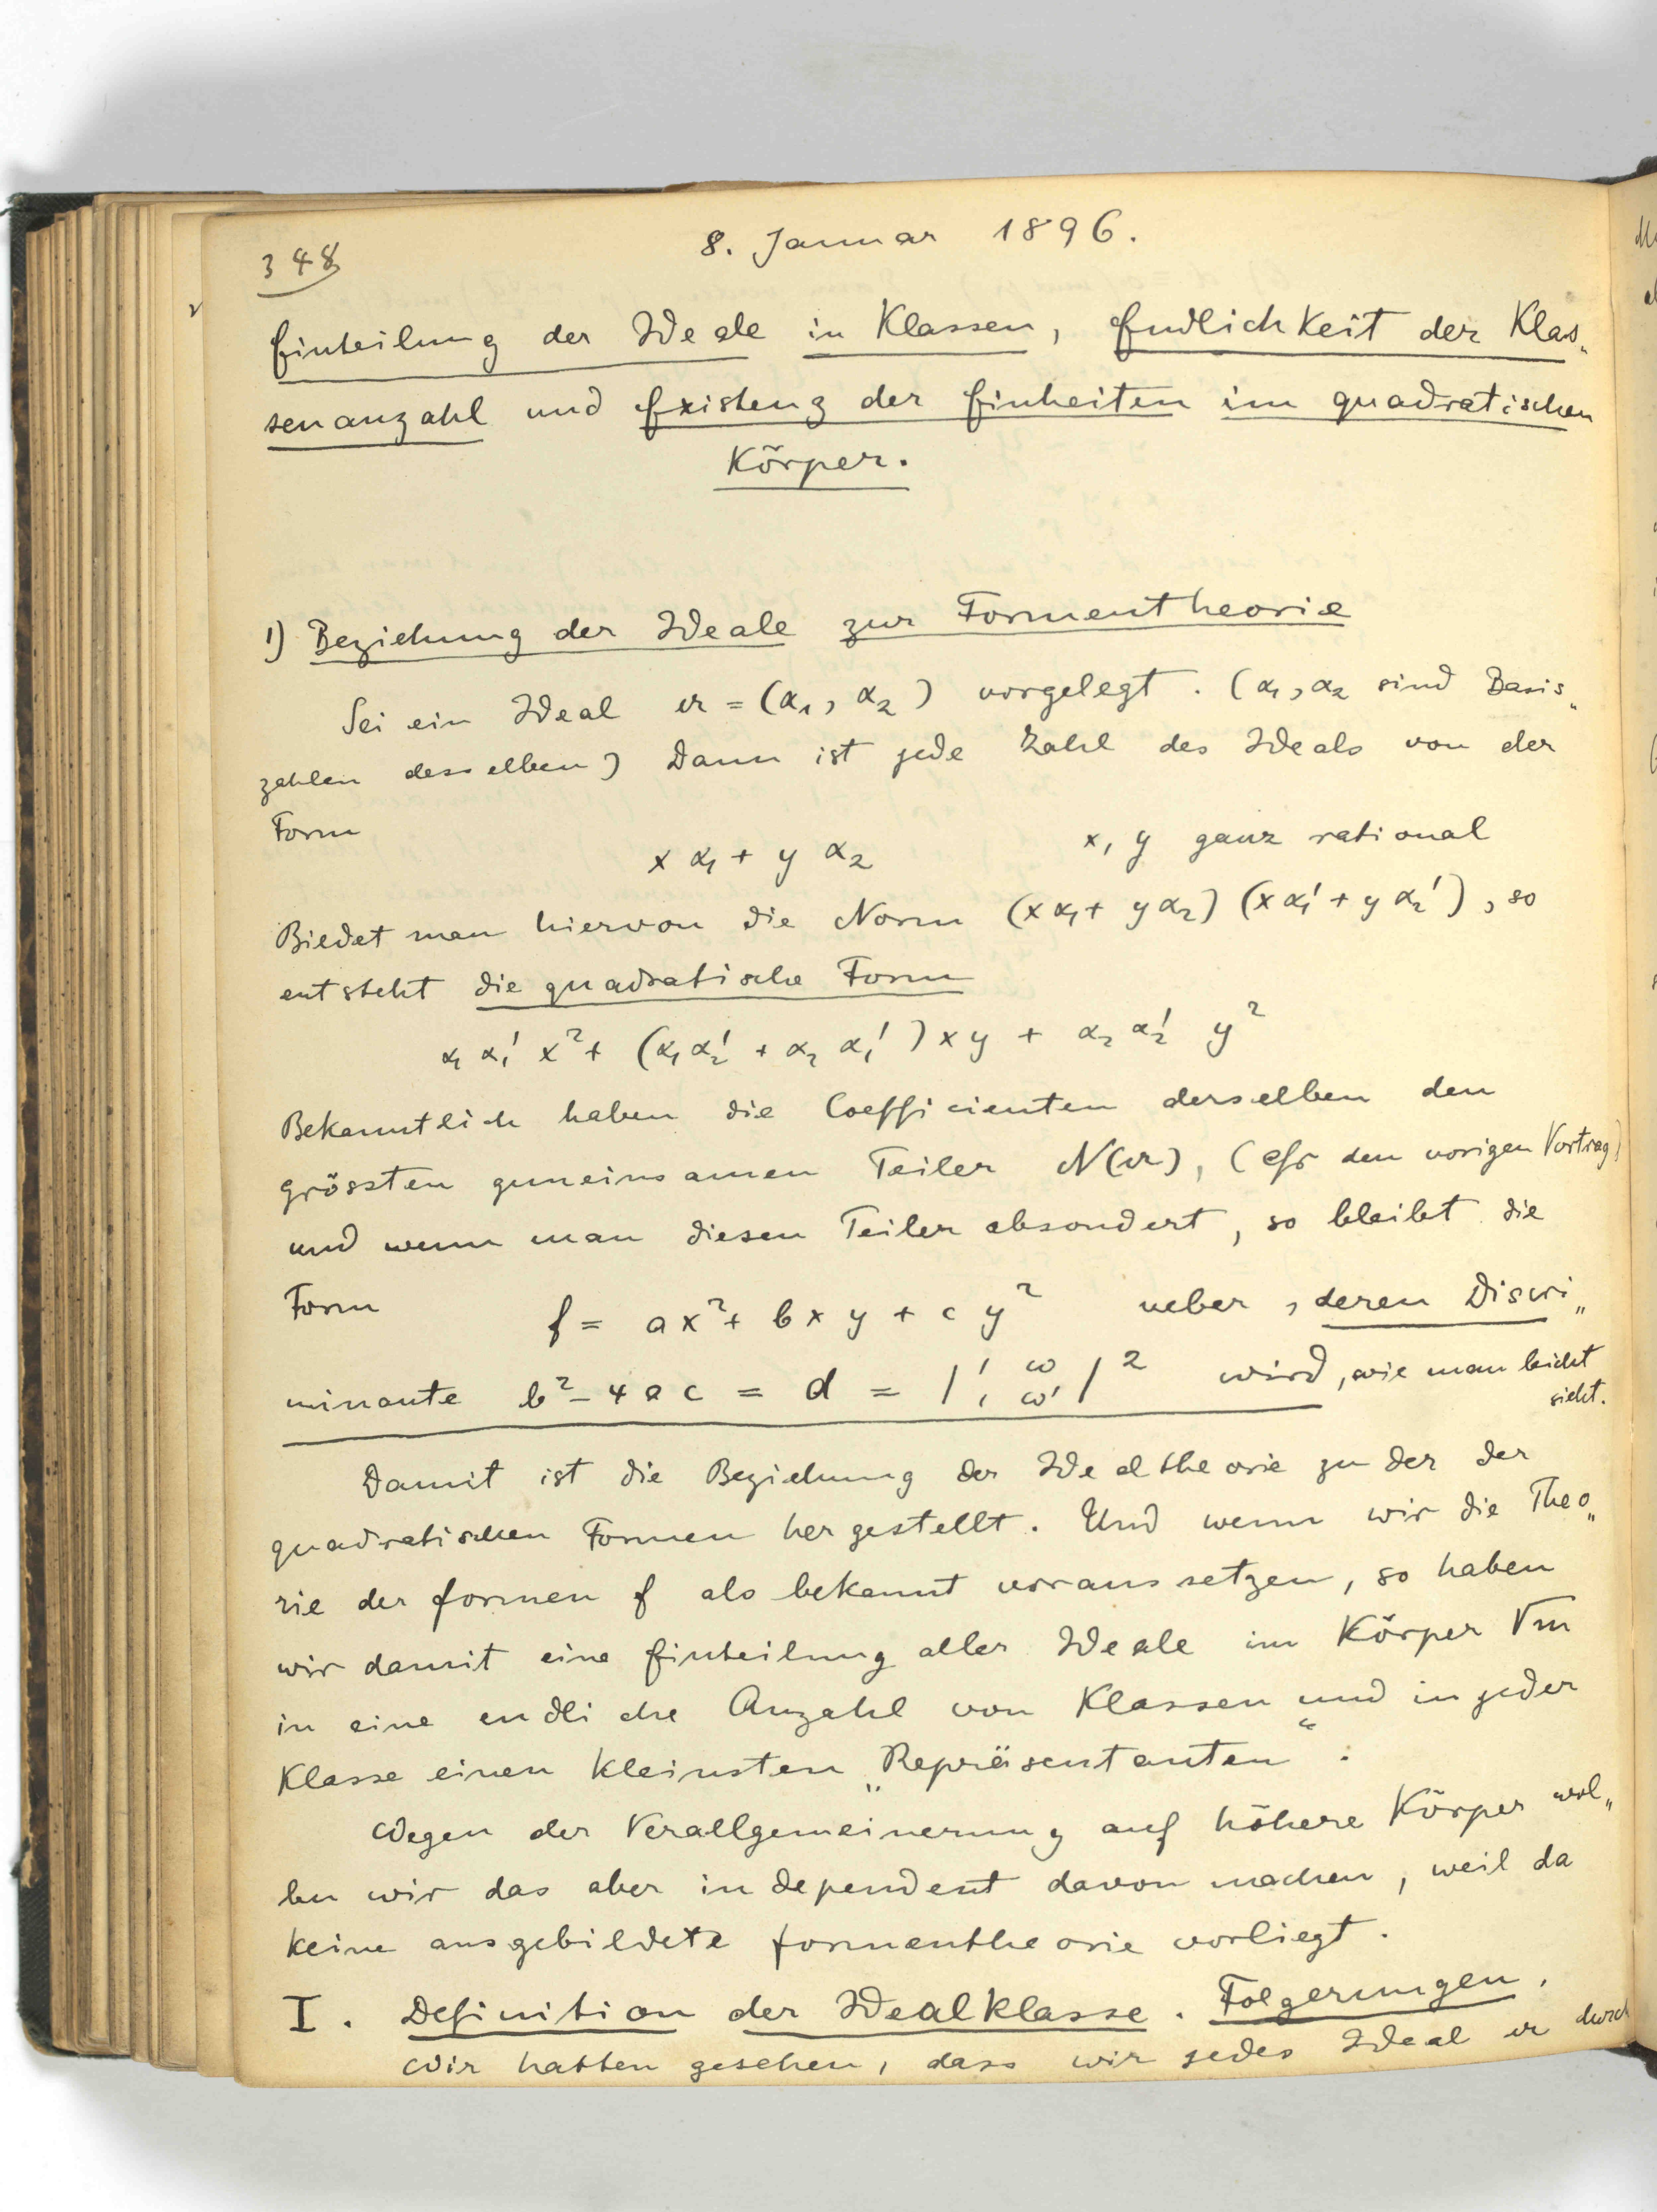 348
8. Januar 1896.
Einteilung der Ideale in Klassen, Endlichkeit der Klas„
senanzahl und Existenz der Einheiten im quadratischen
Körper.
1) Beziehung der Ideale zur Formentheorie
Sei ein Ideal 𝔞 = (α₁, α₂) vorgelegt. (α₁, α₂ sind Basis„
zahlen desselben) Dann ist jede Zahl des Ideals von der
Form
x α₁ + y α₂ x, y ganz rational
Bildet man hiervon die Norm (xα₁ + yα₂) (xα₁' + yα₂'), so
entsteht die quadratische Form
α₁ α₁' x² + (α₁α₂' + α₂ α₁') xy + α₂ α₂' y²
Bekanntlich haben die Coefficienten derselben den
grössten gemeinsamen Teiler N(𝔞), (cfr den vorigen Vortrag)
und wenn man diesen Teiler absondert, so bleibt die
Form f = ax² + bxy + cy² ueber, deren Discri„
minante b² – 4ac = d = |1 ω
1 ω'|² wird, wie man leicht
sieht.
Damit ist die Beziehung der Idealtheorie zu der der
quadratischen Formen hergestellt. Und wenn wir die Theo„
rie der formen f als bekannt voraussetzen, so haben
wir damit eine Einteilung aller Ideale im Körper √m
in eine endliche Anzahl von Klassen und in jeder
Klasse einen kleinsten „Repräsentanten“.
Wegen der Verallgemeinerung auf höhere Körper wol„
len wir das aber independent davon machen, weil da
keine ausgebildete formentheorie vorliegt.
I. Definition der Idealklasse. Folgerungen.
Wir hatten gesehen, dass wir jedes Ideal 𝔞 durch